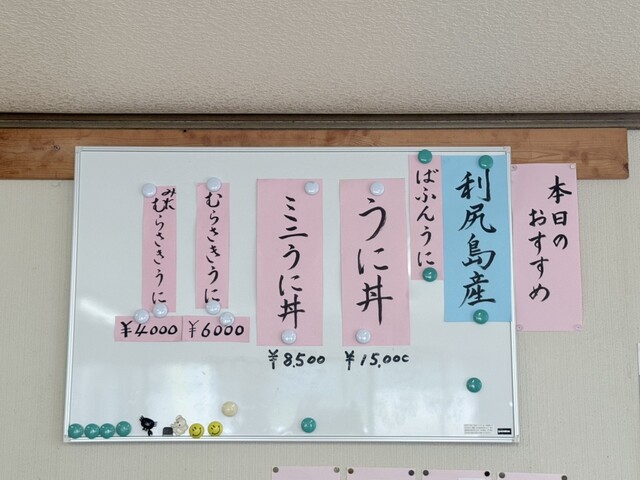 本日の
おすすめ
利尻島産
ばふんうに
うに丼
¥15,000
ミニうに丼
¥8,500
むらさきうに
¥6000
ミニ
むらさきうに
¥4000